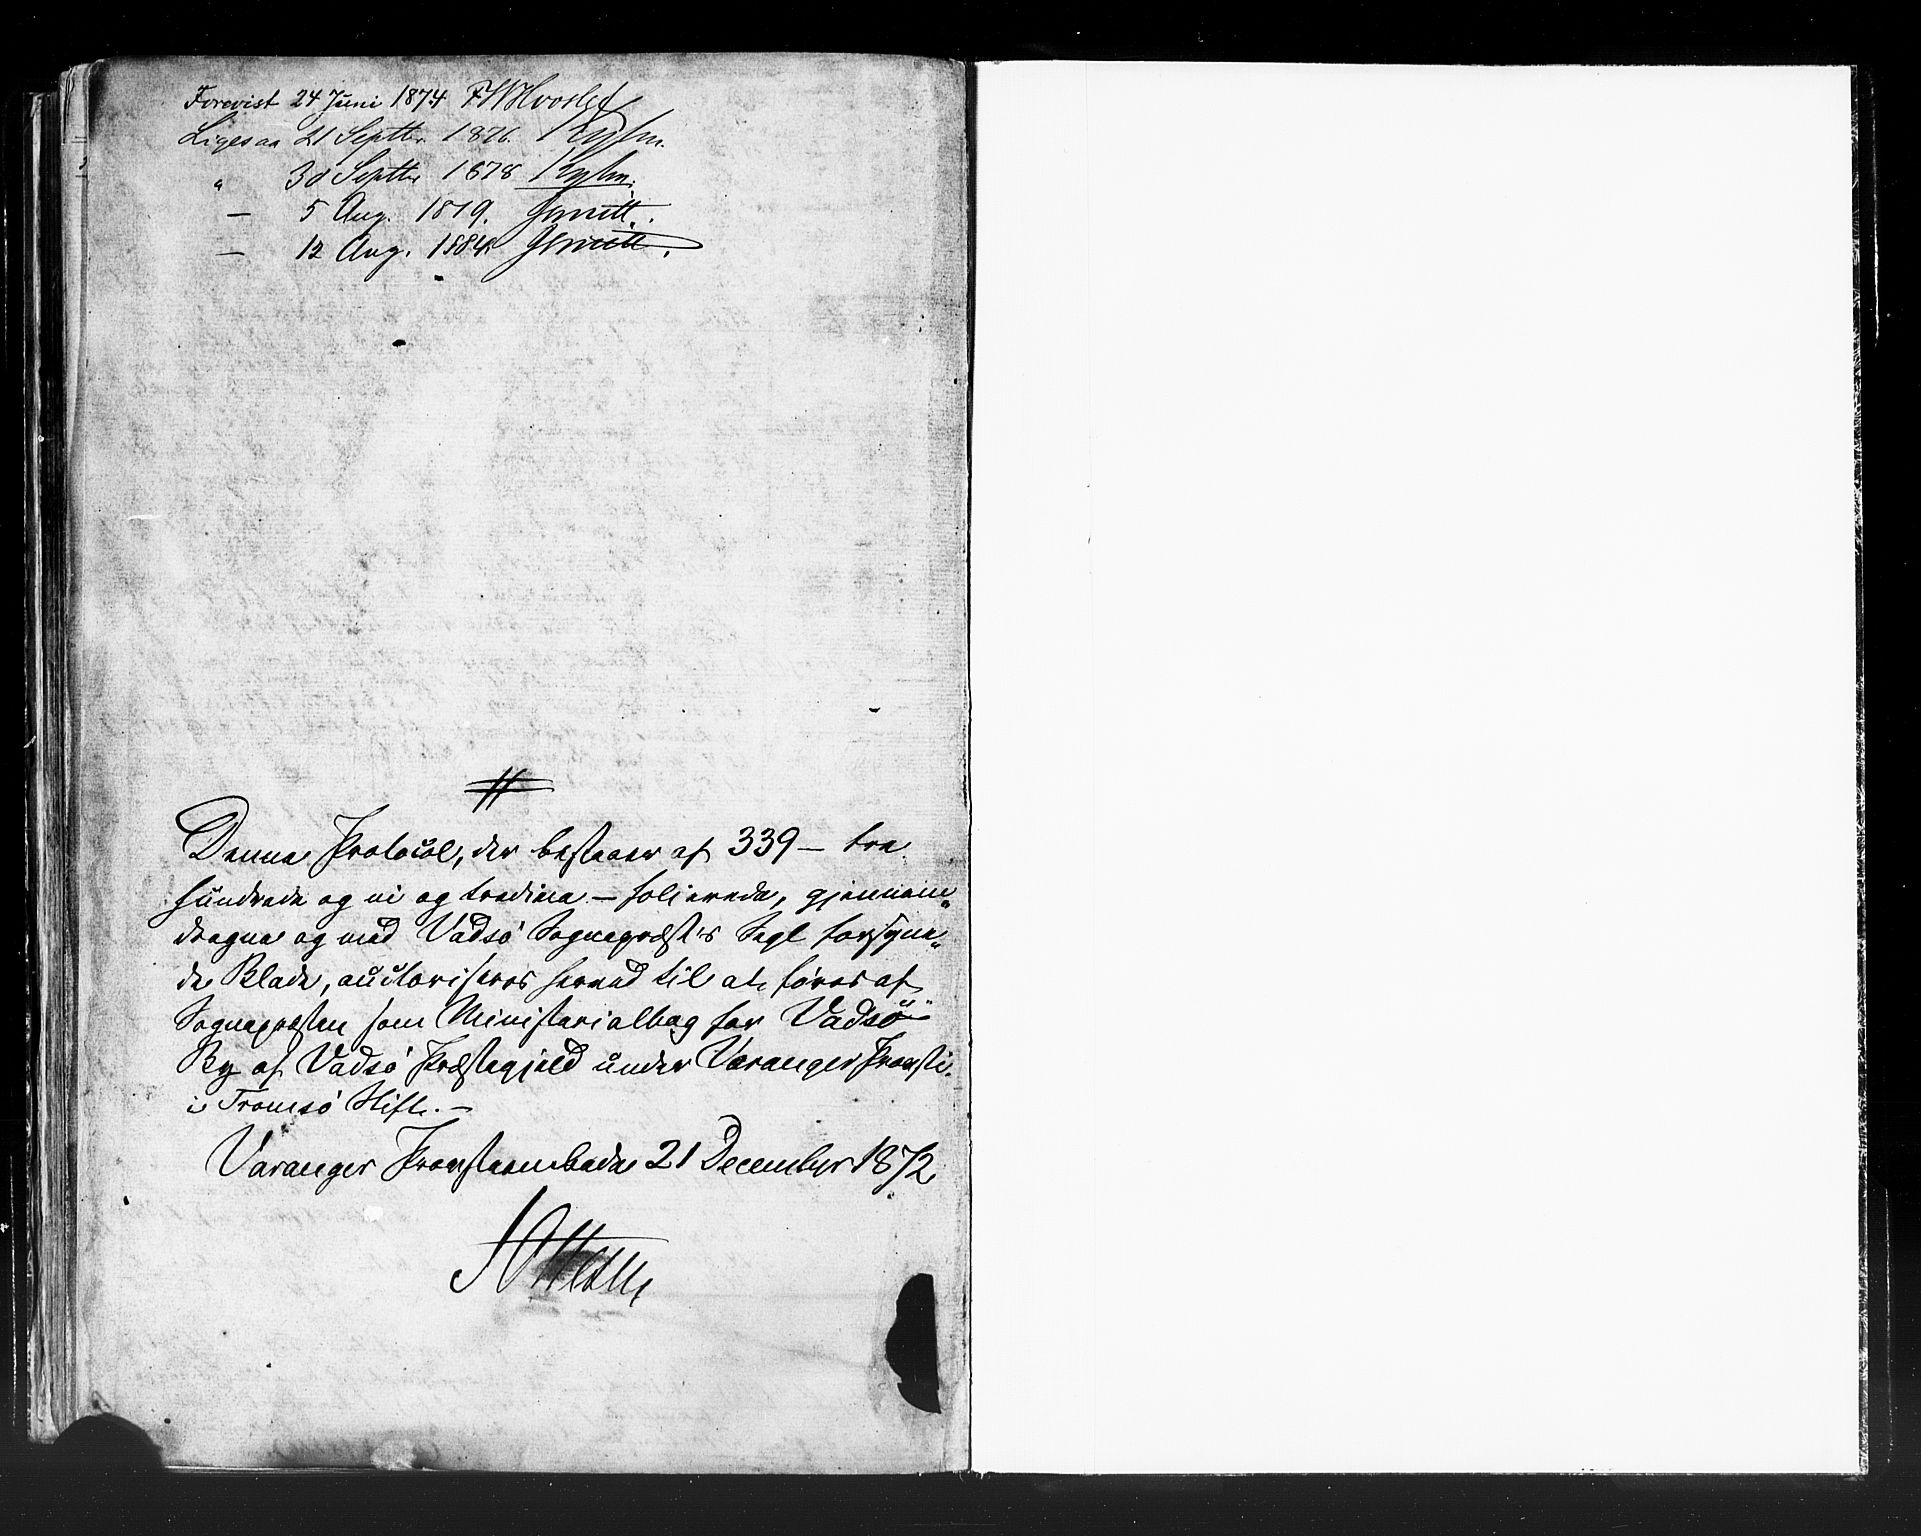 Forevist 24 Juni 1874 FWHvoslef
Ligesaa 21 Septbr. 1876.
" 30 Septbr 1878
— 5 Aug. 1879. JSmitt.
— 12 Aug. 1884. JSmitt.
Denne Protocol, der bestaaer af 339 – tre
hundrede og ni og tredive – folierede, gjennem„
dragne og med Vadsö Sognepræst's Segl forsyne„
de Blade, auctoriseres herved til at föres af
Sognepræsten som Ministerialbog for Vadsö
By af Vadsö Præstegjeld under Varanger Provsti
i Tromsö Stift. —
Varanger Provsteembede 21 December 1872